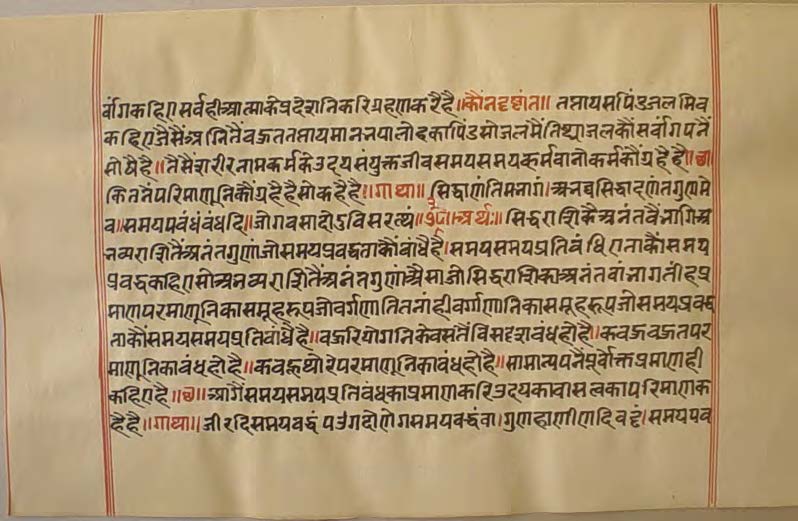 र्वांगकहिए सर्वही आत्माके प्रदेशनिकरि ग्रहण करै है ॥कौनदृष्टांत॥ तप्तायसपिंडजलमिव
कहिए जैसैं अग्नितैं बऊत तप्तायमान पालोहका पिंड सो जलमैं तिष्ठ्या जलकौं सर्वांगपनैं
सोषै है। तैसैं शरीरनामकर्मके उदय संयुक्त जीव समयसमय कर्म वा नोकर्मकौं ग्रहै है॥
कितनैं परिमाणूनिकौं ग्रहै है सो कहै है॥गाथा॥ सिद्धाणंतिमभागं। अभवसिद्धादणंतगुणमे
व। समयपबंधं बंधदि। जोगवसादोऽविसरत्थं॥ अर्थः॥ सिद्धराशिकै अनंतवैं भागि अ
भव्यराशितैं अनंतगुणां जो समयप्रबद्ध ताकौं बांधै है। समयसमयप्रति बंधिए ताकौं समय
प्रबद्ध कहिए सो अभव्यराशितैं अनंतगुणां अैसा जो सिद्धराशिका अनंतवां भाग तींहप्र
माण परमाणूनिका समूहरूप जो वर्गणा तितनांही वर्गणानिका समूहरूप जो समयप्रबद्ध
ताकौं समयसमयप्रति बांधै है॥ बऊरि योगनिके वसतैं विसदृश बंध हो है। कबऊ बऊत पर
माणूनिका बंध हो है॥ कबऊ थोरे परमाणूनिका बंध हो है॥ सामान्यपनैं पूर्वोक्त प्रमाणही
कहिए है॥ आगैं समयसमयप्रति बंधका प्रमाण करि उदयका वा सत्वका परिमाण क
है है॥गाथा॥ जीरदि समयबद्धं पउगदो णेगसमयबद्धं वा। गुणहाणीणदिवट्टं। समयपब